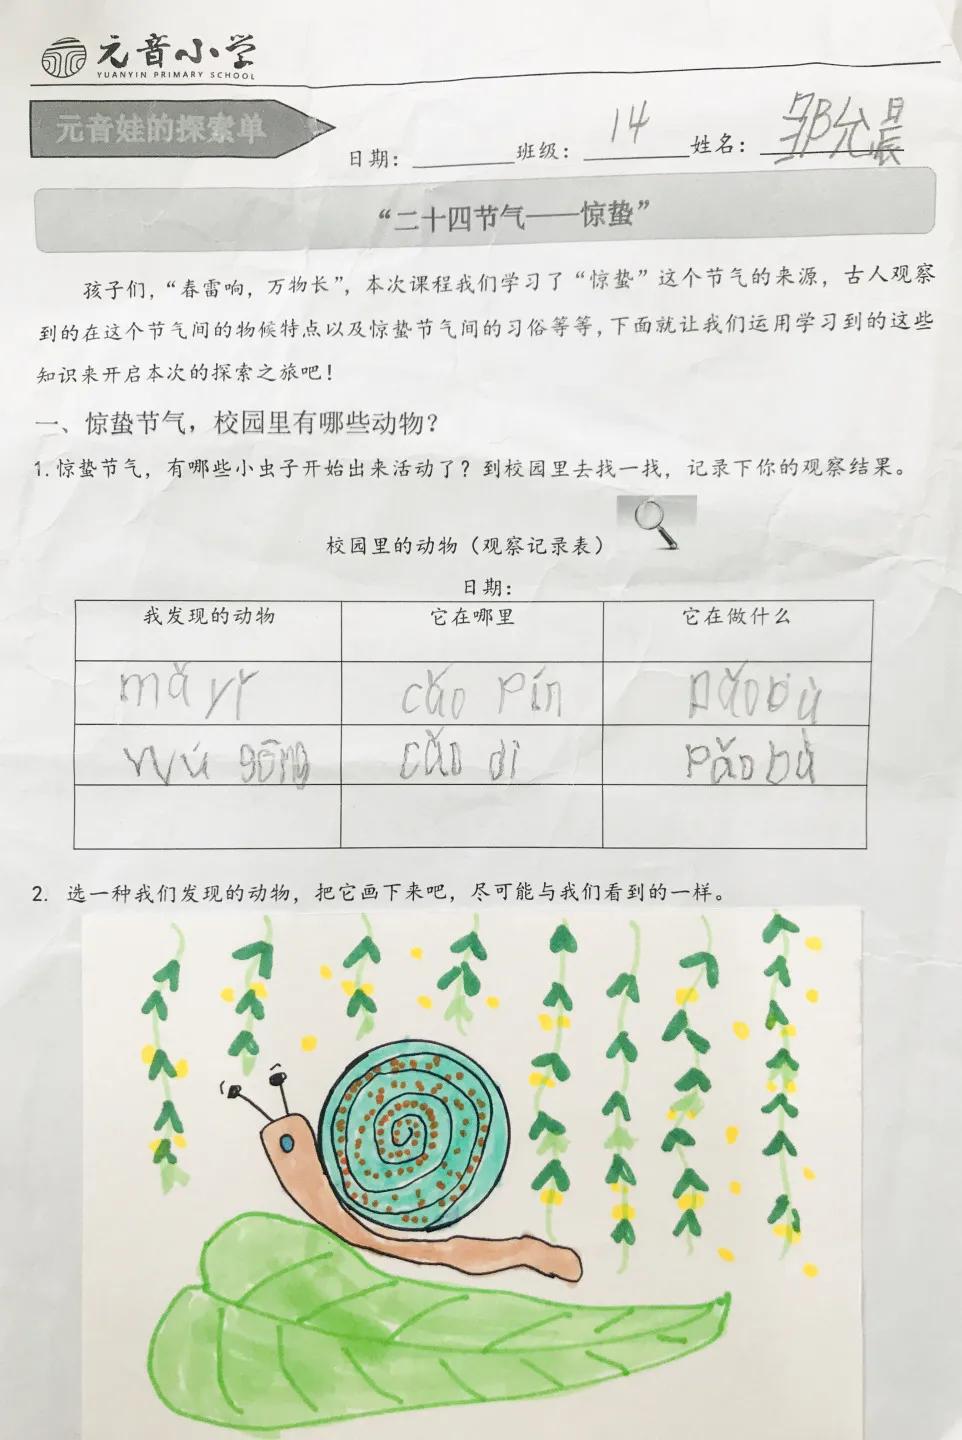 元音小学
YUANYIN PRIMARY SCHOOL
元音娃的探索单
日期：________班级：14 姓名：邹允晨
“二十四节气——惊蛰”
孩子们，“春雷响，万物长”，本次课程我们学习了“惊蛰”这个节气的来源，古人观察
到的在这个节气间的物候特点以及惊蛰节气间的习俗等等，下面就让我们运用学习到的这些
知识来开启本次的探索之旅吧！
一、惊蛰节气，校园里有哪些动物？
1.惊蛰节气，有哪些小虫子开始出来活动了？到校园里去找一找，记录下你的观察结果。
校园里的动物（观察记录表）
日期：
我发现的动物 它在哪里 它在做什么
mǎ yǐ cǎo pín pǎo bù
wú gōng cǎo dì pǎo bù
2. 选一种我们发现的动物，把它画下来吧，尽可能与我们看到的一样。